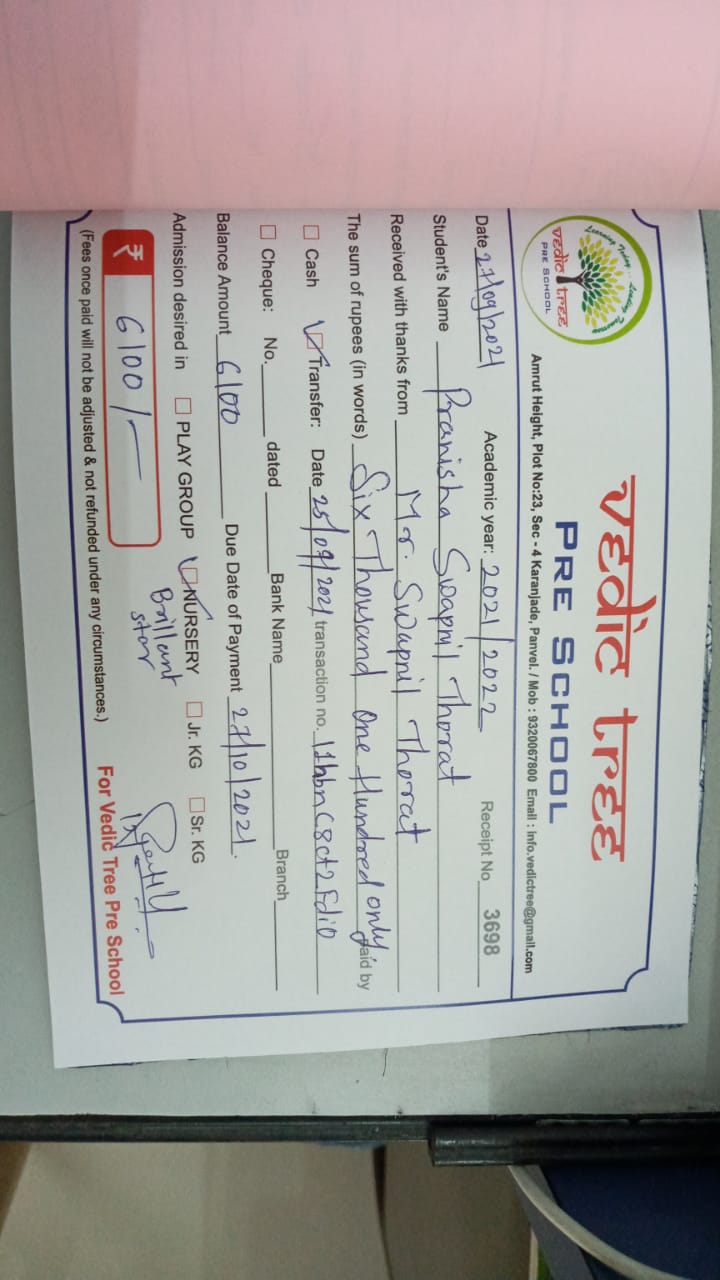 Learning Today... Leading Tomorrow
vedic tree
PRE SCHOOL
vedic tree
PRE SCHOOL
Amrut Height, Plot No:23, Sec - 4 Karanjade, Panvel. / Mob : 9320067800 Email : info.vedictree@gmail.com
Date 27/09/2021 Academic year: 2021/2022 Receipt No 3698
Student's Name Pranisha Swapnil Thorat
Received with thanks from Mr. Swapnil Thorat
The sum of rupees (in words) Six Thousand One Hundred only paid by
Cash Transfer: Date 25/09/2021 transaction no.
Cheque: No. dated Bank Name Branch
Balance Amount 6100 Due Date of Payment 27/10/2021.
Admission desired in PLAY GROUP NURSERY Jr. KG Sr. KG
Brillant
star
₹ 6100/-
For Vedic Tree Pre School
(Fees once paid will not be adjusted & not refunded under any circumstances.)